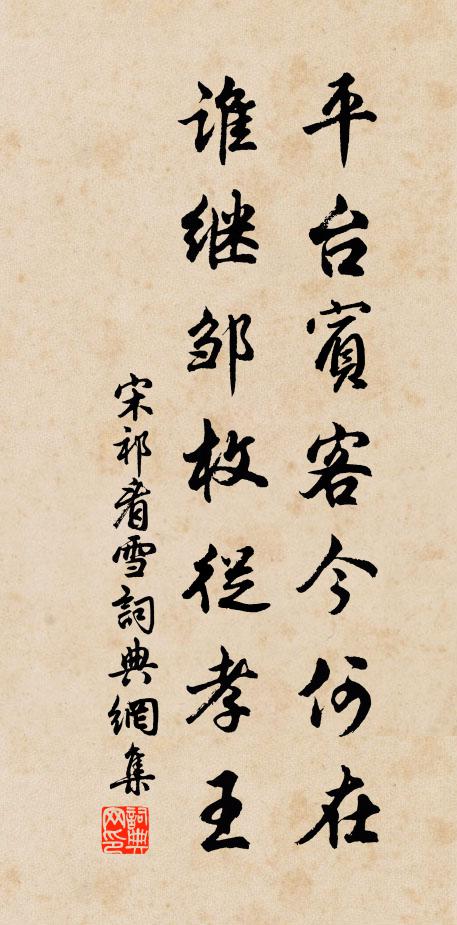 平台賓客今何在
谁继邹枚從孝王
宋祁看雪詞典網集
詞典网印